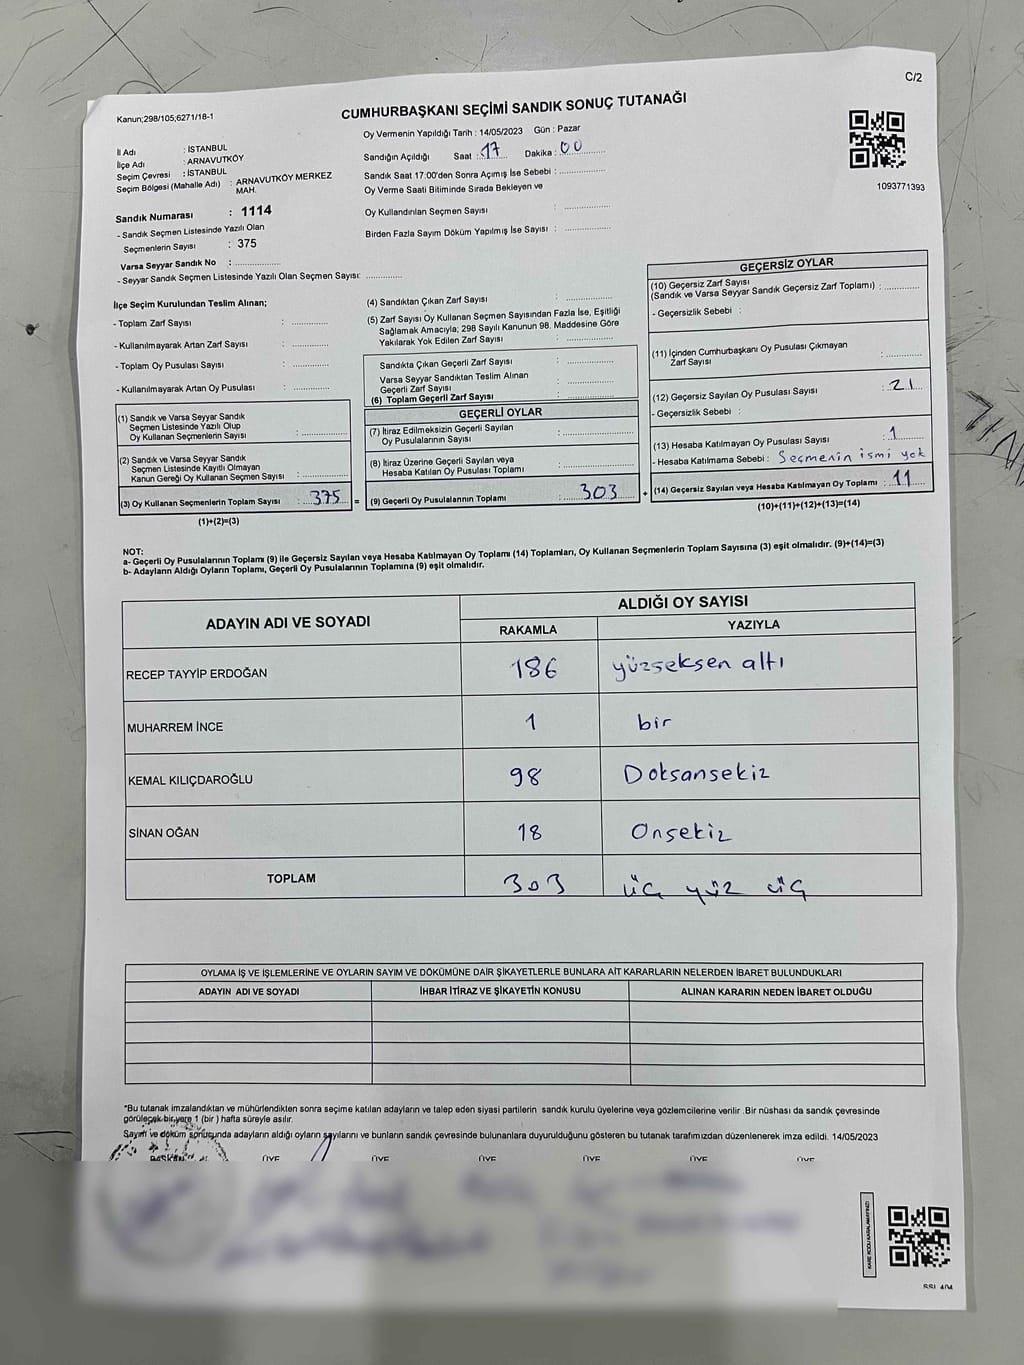 C/2
Kanun;298/105;6271/18-1
CUMHURBAŞKANI SEÇİMİ SANDIK SONUÇ TUTANAĞI
İl Adı : İSTANBUL
İlçe Adı : ARNAVUTKÖY
Seçim Çevresi : İSTANBUL
Seçim Bölgesi (Mahalle Adı) : ARNAVUTKÖY MERKEZ MAH.
Sandık Numarası : 1114
- Sandık Seçmen Listesinde Yazılı Olan
Seçmenlerin Sayısı : 375
Varsa Seyyar Sandık No : ................
- Seyyar Sandık Seçmen Listesinde Yazılı Olan Seçmen Sayısı: ............
Oy Vermenin Yapıldığı Tarih : 14/05/2023 Gün : Pazar
Sandığın Açıldığı Saat : 17 Dakika : 00
Sandık Saat 17:00'den Sonra Açımış İse Sebebi : ................
Oy Verme Saati Bitiminde Sırada Bekleyen ve
Oy Kullandırılan Seçmen Sayısı : ................
Birden Fazla Sayım Döküm Yapılmış İse Sayısı : ................
1093771393
İlçe Seçim Kurulundan Teslim Alınan;
- Toplam Zarf Sayısı : ............
- Kullanılmayarak Artan Zarf Sayısı : ............
- Toplam Oy Pusulası Sayısı : ............
- Kullanılmayarak Artan Oy Pusulası : ............
(1) Sandık ve Varsa Seyyar Sandık
Seçmen Listesinde Yazılı Olup
Oy Kullanan Seçmenlerin Sayısı : ................
(2) Sandık ve Varsa Seyyar Sandık
Seçmen Listesinde Kayıtlı Olmayan
Kanun Gereği Oy Kullanan Seçmen Sayısı : ................
(3) Oy Kullanan Seçmenlerin Toplam Sayısı : 375 =
(1)+(2)=(3)
(4) Sandıktan Çıkan Zarf Sayısı : ................
(5) Zarf Sayısı Oy Kullanan Seçmen Sayısından Fazla İse, Eşitliği
Sağlamak Amacıyla; 298 Sayılı Kanunun 98. Maddesine Göre
Yakılarak Yok Edilen Zarf Sayısı : ................
Sandıkta Çıkan Geçerli Zarf Sayısı : ................
Varsa Seyyar Sandıktan Teslim Alınan
Geçerli Zarf Sayısı : ................
(6) Toplam Geçerli Zarf Sayısı : ................
GEÇERLİ OYLAR
(7) İtiraz Edilmeksizin Geçerli Sayılan
Oy Pusulalarının Sayısı : ................
(8) İtiraz Üzerine Geçerli Sayılan veya
Hesaba Katılan Oy Pusulası Toplamı : ................
(9) Geçerli Oy Pusulalarının Toplamı : 303 +
GEÇERSİZ OYLAR
(10) Geçersiz Zarf Sayısı
(Sandık ve Varsa Seyyar Sandık Geçersiz Zarf Toplamı) : ............
- Geçersizlik Sebebi :
(11) İçinden Cumhurbaşkanı Oy Pusulası Çıkmayan
Zarf Sayısı : ............
(12) Geçersiz Sayılan Oy Pusulası Sayısı : 21
- Geçersizlik Sebebi :
(13) Hesaba Katılmayan Oy Pusulası Sayısı : 1
- Hesaba Katılmama Sebebi : Seçmenin ismi yok
(14) Geçersiz Sayılan veya Hesaba Katılmayan Oy Toplamı : 11
(10)+(11)+(12)+(13)=(14)
NOT:
a- Geçerli Oy Pusulalarının Toplamı (9) ile Geçersiz Sayılan veya Hesaba Katılmayan Oy Toplamı (14) Toplamları, Oy Kullanan Seçmenlerin Toplam Sayısına (3) eşit olmalıdır. (9)+(14)=(3)
b- Adayların Aldığı Oyların Toplamı, Geçerli Oy Pusulalarının Toplamına (9) eşit olmalıdır.
ADAYIN ADI VE SOYADI
ALDIĞI OY SAYISI
RAKAMLA YAZIYLA
RECEP TAYYİP ERDOĞAN 186 yüzseksen altı
MUHARREM İNCE 1 bir
KEMAL KILIÇDAROĞLU 98 Doksansekiz
SİNAN OĞAN 18 Onsekiz
TOPLAM 303 üç yüz üç
OYLAMA İŞ VE İŞLEMLERİNE VE OYLARIN SAYIM VE DÖKÜMÜNE DAİR ŞİKAYETLERLE BUNLARA AİT KARARLARIN NELERDEN İBARET BULUNDUKLARI
ADAYIN ADI VE SOYADI İHBAR İTİRAZ VE ŞİKAYETİN KONUSU ALINAN KARARIN NEDEN İBARET OLDUĞU
*Bu tutanak imzalandıktan ve mühürlendikten sonra seçime katılan adayların ve talep eden siyasi partilerin sandık kurulu üyelerine veya gözlemcilerine verilir .Bir nüshası da sandık çevresinde
görülecek bir yere 1 (bir ) hafta süreyle asılır.
Sayım ve döküm sonusunda adayların aldığı oyların sayılarını ve bunların sandık çevresinde bulunanlara duyurulduğunu gösteren bu tutanak tarafımızdan düzenlenerek imza edildi. 14/05/2023
BAŞKAN ÜYE ÜYE ÜYE ÜYE ÜYE ÜYE
KARE KODU KARALAMAYINIZ!